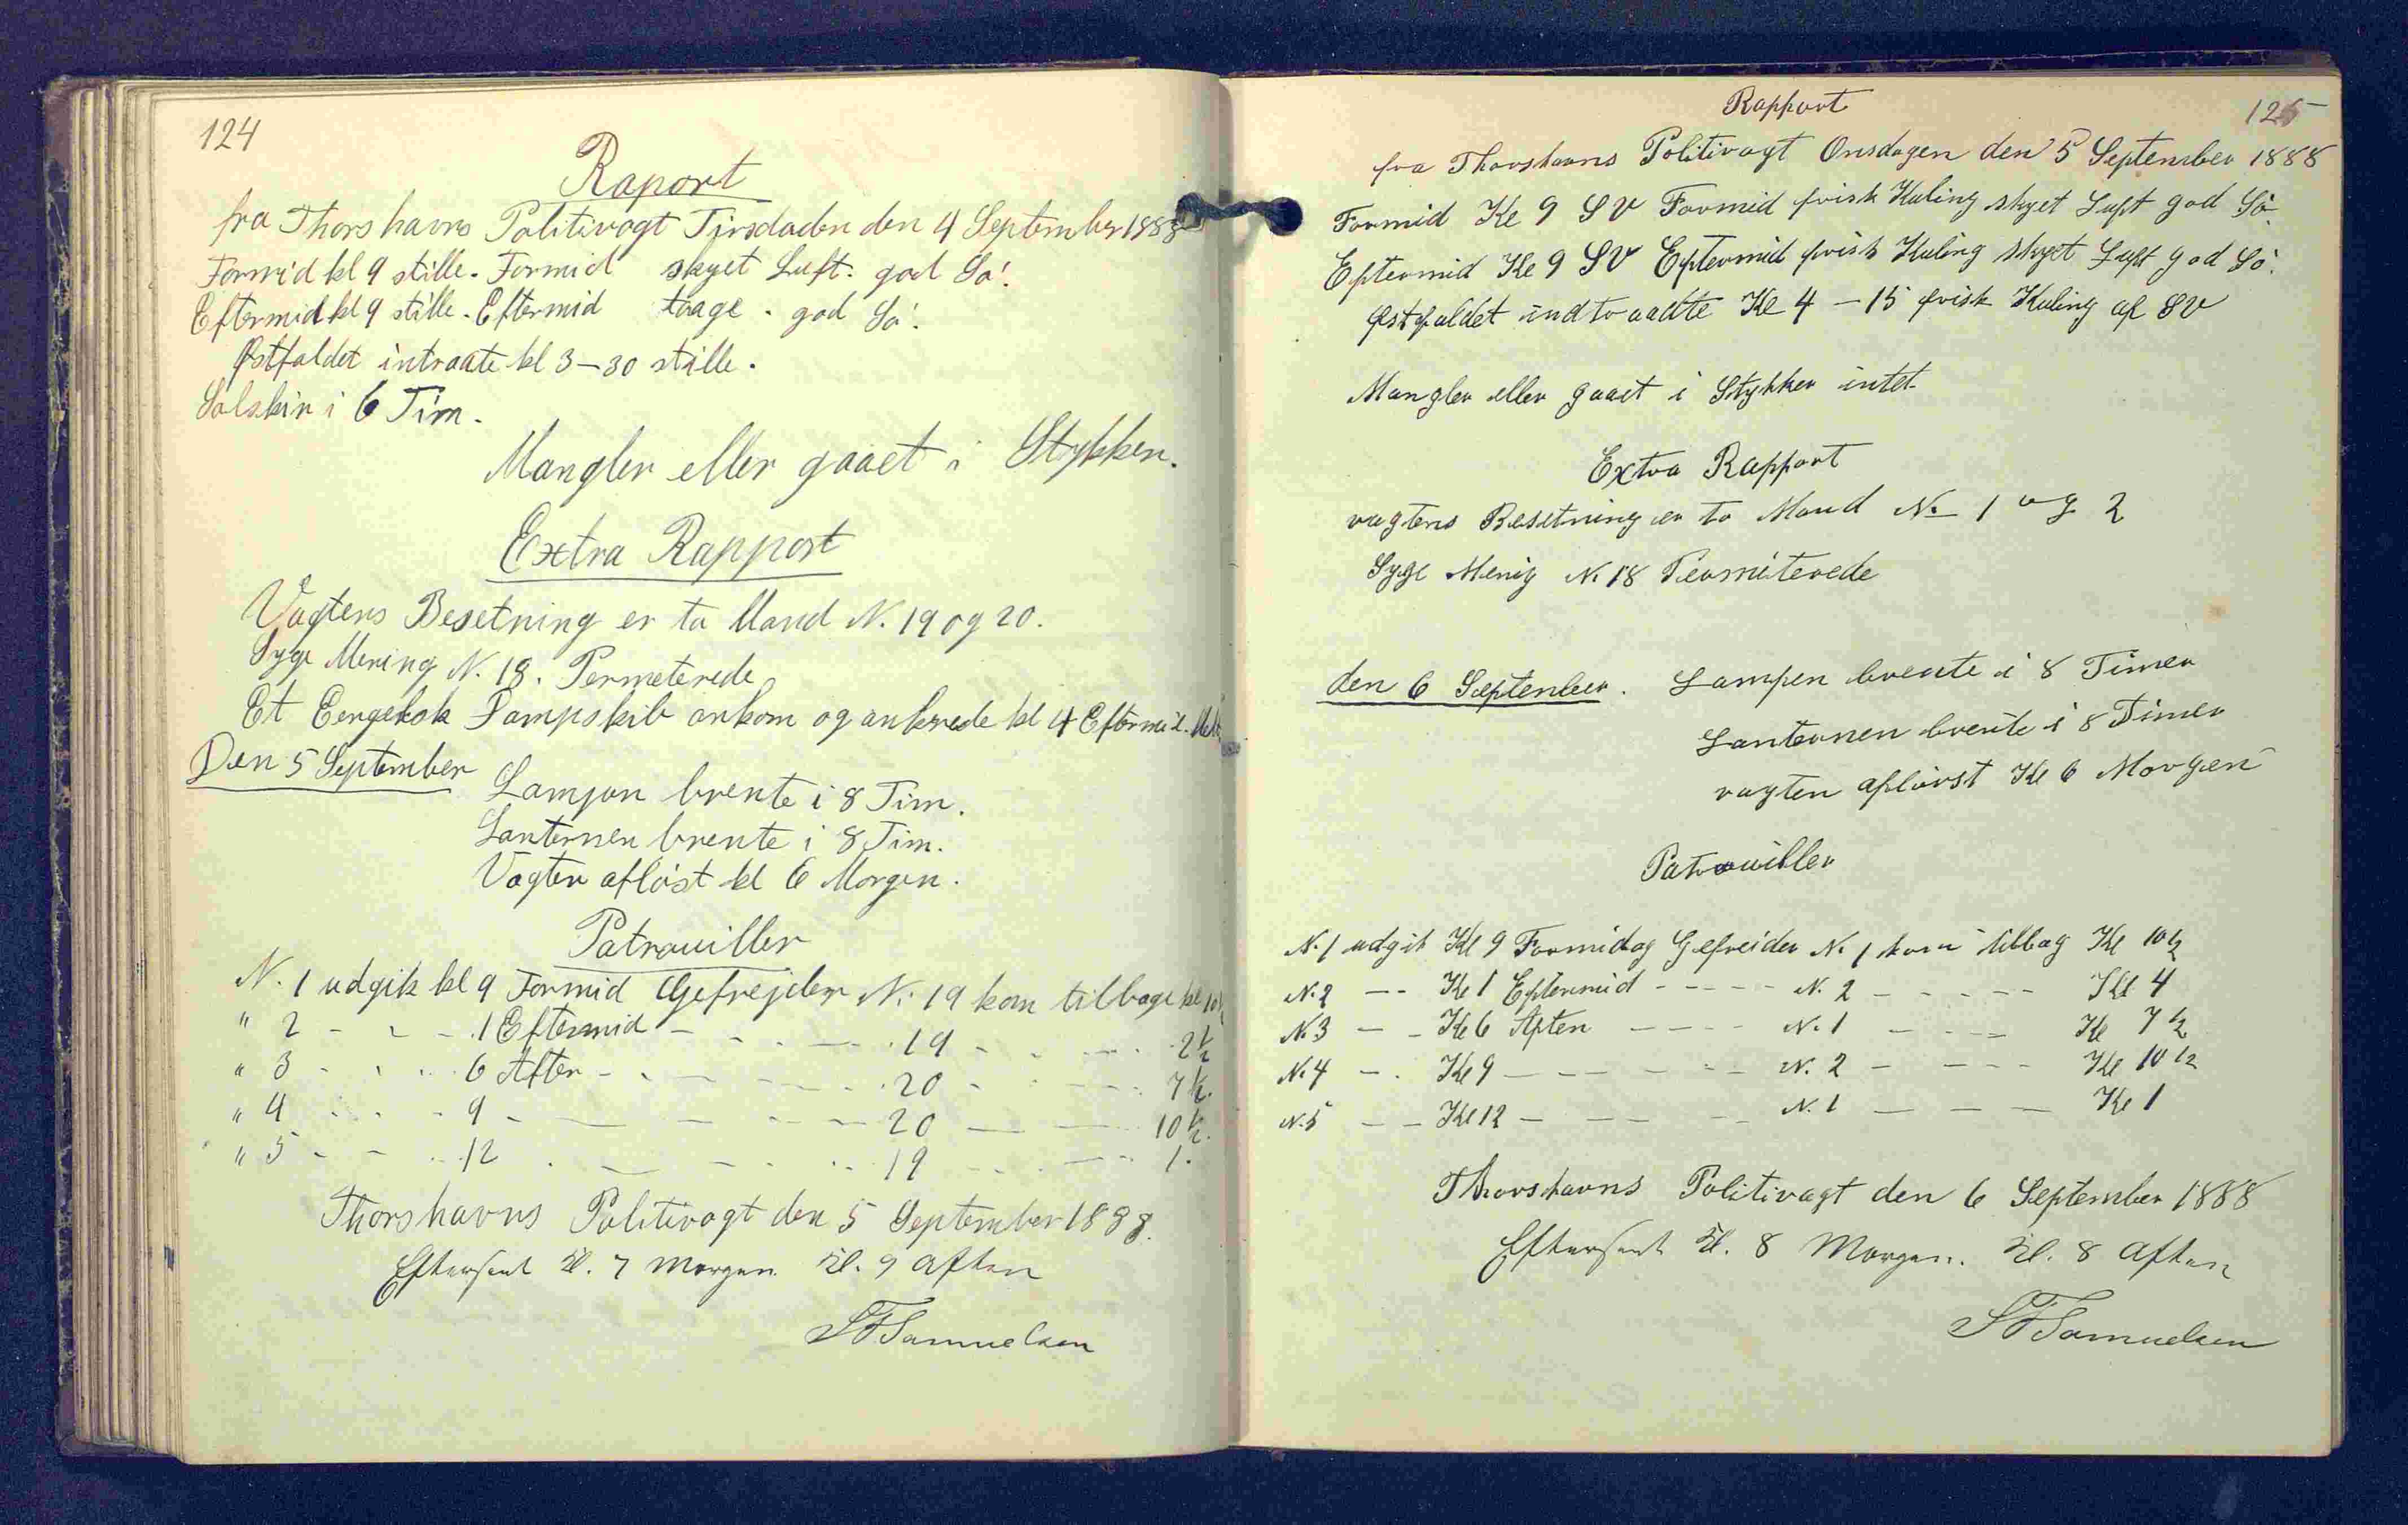 124
Raport
fra Thorshavns Politivagt Tirsdaden den 4 September 1888
Formid kl 9 stille. Formid skyet Luft. god Sö.
Eftermid kl 9 stille. Eftermid taage. god Sö.
Østfaldet intraate kl 3-30 stille.
Solskin i 6 Tim.
Mangler eller gaaet i Stykker.
Extra Rapport
Vagtens Besetning er to Mand N. 19 og 20.
Syge Mening N. 18. Permeterede
Et Eengelsk Dampskib ankom og ankrede kl 4 Eftermid.
Den 5 September
Lampen brente i 8 Tim.
Lanternen brente i 8 Tim.
Vagten afløst kl 6 Morgen.
Patrouiller
N. 1 udgik kl 9 Formid Gefrejder N. 19 kom tilbage kl 10½
" 2 - - - 1 Eftermid - - - - 19 - - - 2½
" 3 - - - 6 Aften - - - - 20 - - - 7½.
" 4 - - - 9 - - - - 20 - - 10½.
" 5 - - - 12 - - - - 19 - - - 1.
Thorshavns Politivagt den 5 September 1888.
Efterseet Kl. 7 Morgen Kl. 9 Aften
SFSamuelsen
Rapport
125
fra Thorshavns Politivagt Onsdagen den 5 September 1888
Formid Kl 9 SV Formid frisk Kuling skyet Luft god Sö
Eftermid Kl 9 SV Eftermid frisk Kuling skyet Luft god Sö.
Østfaldet indtraadte Kl 4-15 frisk Kuling af SV
Mangler eller gaaet i Stykker intet
Extra Rapport
vagtens Besetning er to Mand No 1 og 2
Syge Menig N. 18 Permiterede
den 6 September. Lampen brente i 8 Timer
Lanternen brente i 8 Timer
vagten afløst Kl 6 Morgen
Patrouiller
N. 1 udgik Kl 9 Formidag Gefreider N. 1 kom tilbag Kl 10½
N. 2 -- Kl 1 Eftermid ---- N. 2 ---- Kl 4
N. 3 -- Kl 6 Aften ---- N. 1 --- Kl 7½
N. 4 -. Kl 9 ---- N. 2 ---- Kl 10½
N. 5 -- Kl 12 --- N. 1 --- Kl 1
Thorshavns Politivagt den 6 September 1888
Efterseet Kl. 8 Morgen. Kl. 8 Aften
SFSamuelsen